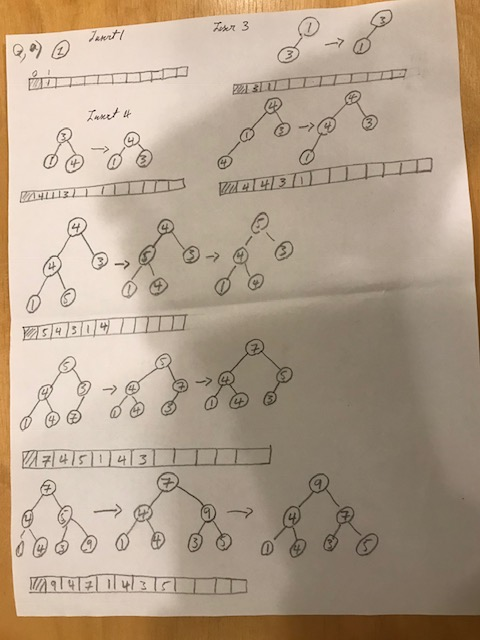 Insert 1
Inser 3
1
1
3
1
3
1
0 1
1
3 1
Insert 4
3
1 4
4
1 3
4
1 3
4
4
4 3
1
4 1 3
4 4 3 1
4
4 3
1 5
4
5 3
1 4
5
4 3
1 4
5 4 3 1 4
5
4
1 4 7
5
4 7
1 4 3
7
4 5
1 4 3
7 4 5 1 4 3
7
4 5
1 4 3 9
7
4 9
1 4 3 5
9
4 7
1 4 3 5
9 4 7 1 4 3 5